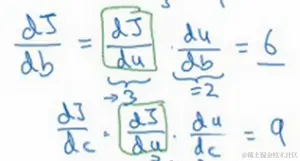 dJ/db = dJ/du · du/db = 6
→3 =2
dJ/dc · dJ/du · du/dc = 9
@稀土掘金技术社区